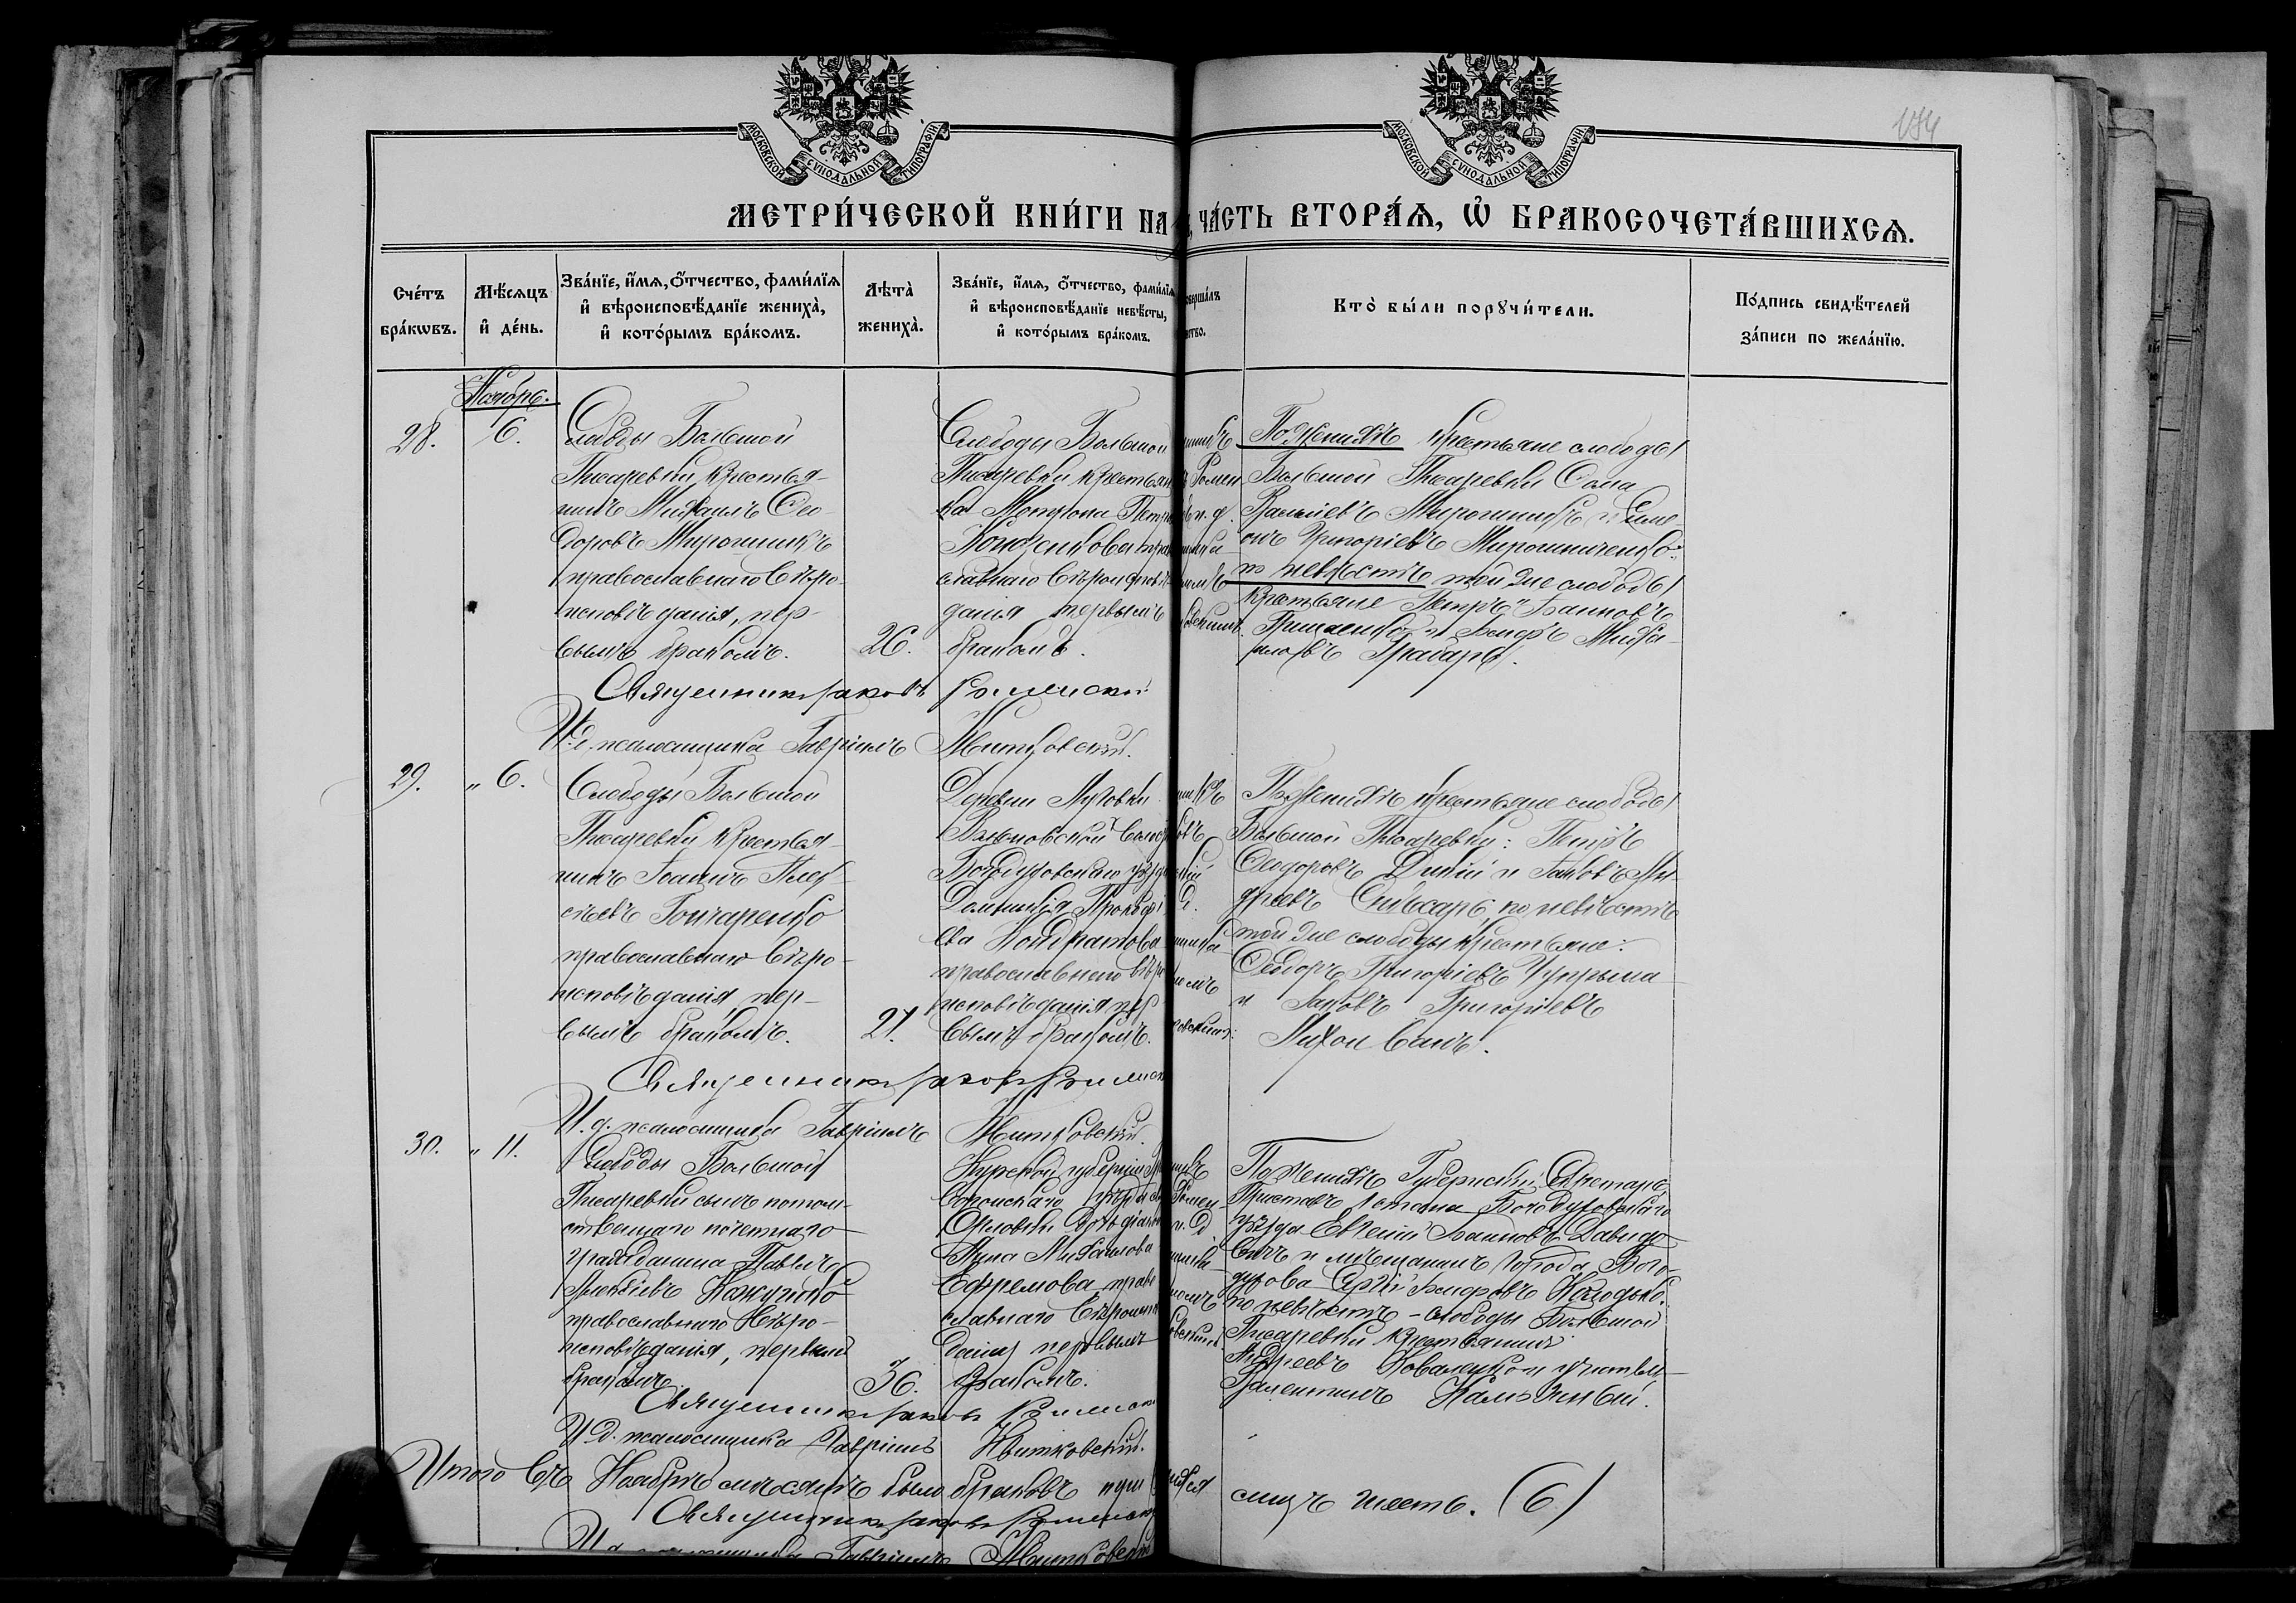 МОСКОВСКОЙ СѴНОДАЛЬНОЙ ТИПОГРАФІИ
МОСКОВСКОЙ СѴНОДАЛЬНОЙ ТИПОГРАФІИ
194
МЕТРИ́ЧЕСКОЙ КНИ́ГИ НА
ЧА́СТЬ ВТОРА́Ѧ, Ѡ҆ БРАКОСОЧЕТА́ВШИХСѦ.
Сче́тъ
бра́кѡвъ.
Мѣ́сѧцъ
и҆ де́нь.
Зва́нїе, и҆́мѧ, ѻ҆́тчество, фами́лїѧ
и҆ вѣроисповѣ́данїе жениха̀,
и҆ кото́рымъ бра́комъ.
Лѣта̀
жениха̀.
Зва́нїе, и҆́мѧ, ѻ҆́тчество, фами́лїѧ
и҆ вѣроисповѣ́данїе невѣ́сты,
и҆ кото́рымъ бра́комъ.
соверша́лъ
нство.
Кто̀ бы́ли порꙋчи́тели.
По́дпись свидѣ́телей
за́писи по жела́нїю.
Ноябрь.
28.
6.
Слободы Большой
Писаревки крестья-
нинъ Михаилъ Ѳео-
доровъ Мирошникъ
православнаго вѣро-
исповѣданія, пер-
вымъ бракомъ.
26.
Слободы Большой
Писаревки крестьян
ка Матрона Петр
славнаго вѣроисповѣ-
данія первымъ
бракомъ.
По женихѣ крестьяне слободы
Большой Писаревки
Мирошникъ и Симе-
онъ Григоріевъ Мирошниченко:
по невѣстѣ той же слободы
крестьяне Петръ Іоанновъ
Грищенко и Ѳеодоръ Миха-
иловъ Грабарь.
Священникъ Іаковъ Роменскій
И. д. псаломщика Гавріилъ Житковскій.
29.
" 6.
Слободы Большой
Писаревки крестья-
нинъ Іоаннъ Алек-
сѣевъ Гончаренко
православнаго вѣро-
исповѣданія, пер-
вымъ бракомъ.
21.
Деревни Луговки
Вольновской волос
Богодуховскаго уѣзд
Домникія Прокофі
ева Кондратова
православнаго вѣро
исповѣданія пер
вымъ бракомъ.
По женихѣ крестьяне слободы
Большой Писаревки: Петръ
Ѳеодоровъ Дикій и Іаковъ Ан-
дреевъ Слѣсарь, по невѣстѣ
той же слободы крестьяне:
Ѳеодоръ Григоріевъ Чупрына
и Іаковъ Григоріевъ
Лихонванъ.
Священникъ Іаковъ Роменск
И. д. псаломщика Гавріилъ Житковскій.
30.
" 11.
Слободы Большой
Писаревки сынъ потом-
ственнаго почетнаго
гражданина Павелъ
православнаго вѣро-
исповѣданія, первымъ
бракомъ
36.
Курской губерніи
Анна Михаилова
Ефремова, право
славнаго вѣроиспо
данія первымъ
бракомъ.
По женихѣ Губернскій Секретарь
Приставъ 1 стана Богодуховскаго
уѣзда Евгеній Іоанновъ Давидо-
вичъ и мѣщанинъ города Бого-
духова Сергій Ѳеодоровъ Колодько.
по невѣстѣ - слободы Большой
Писаревки крестьянинъ
Андреевъ Коваленко и учитель
Валентинъ
Священникъ Іаковъ Роменск
И. д. псаломщика Гавріилъ Житковскій.
Итого въ Ноябрѣ мѣсяцѣ было браковъ
шесть. (6)
Священникъ Іаковъ Роменск
И. д. псаломщика Гавріилъ Житковскій